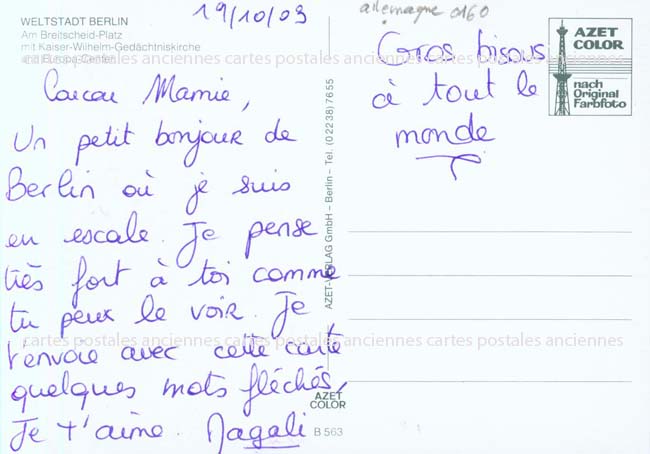 19/10/09
allemagne 0160
WELTSTADT BERLIN
Am Breitscheid-Platz
mit Kaiser-Wilhelm-Gedächtniskirche
und Europa-Center
cartes postales anciennes cartes postales anciennes cartes postales anciennes
Coucou Mamie,
Un petit bonjour de
Berlin où je suis
en escale. Je pense
très fort à toi comme
tu peux le voir. Je
t'envoie avec cette carte
quelques mots fléchés,
Je t'aime. Magali
cartes postales anciennes cartes postales anciennes cartes postales anciennes
AZET-VERLAG GmbH – Berlin – Tel. (0 22 38) 76 55
AZET
COLOR
B 563
Gros bisous
à tout le
monde
AZET
COLOR
nach
Original
Farbfoto